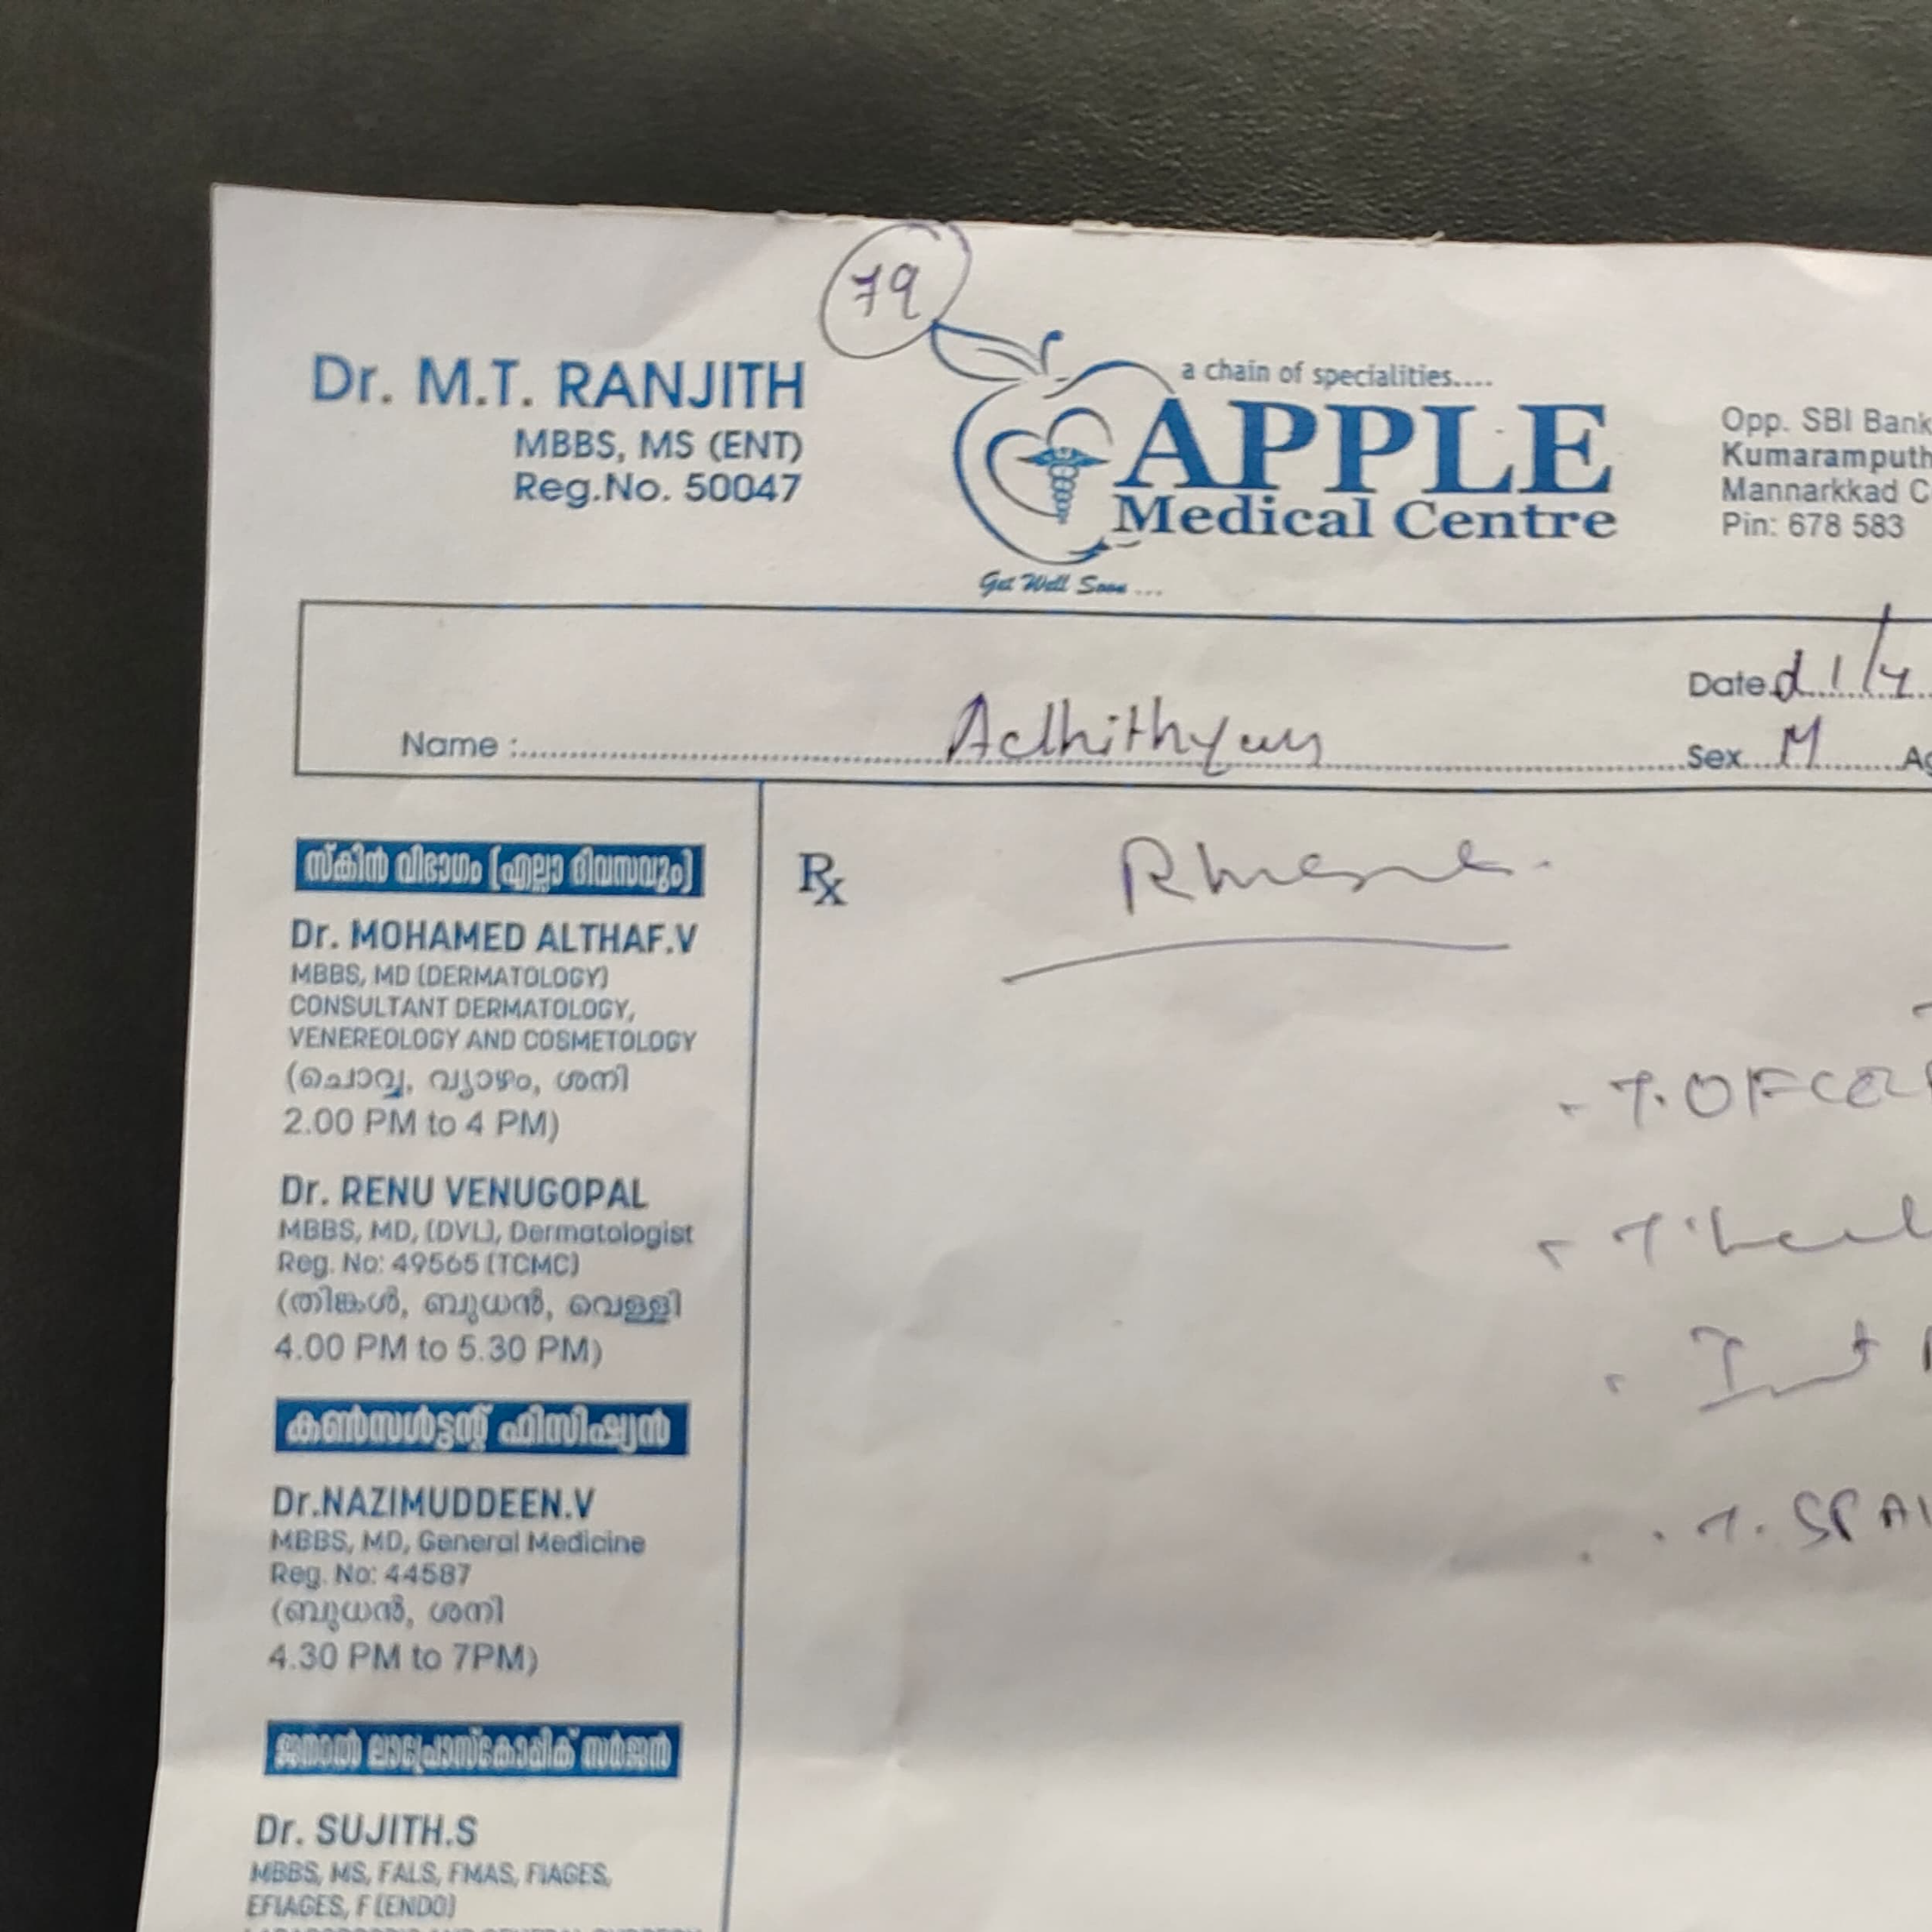 79
Dr. M.T. RANJITH
MBBS, MS (ENT)
Reg.No. 50047
a chain of specialities....
APPLE
Medical Centre
Get Well Soon ...
Opp. SBI Bank
Kumaramputh
Mannarkkad C
Pin: 678 583
Date
Name : Adhithyan
Sex M Ag
സ്കിൻ വിഭാഗം (എല്ലാ ദിവസവും)
Dr. MOHAMED ALTHAF.V
MBBS, MD (DERMATOLOGY)
CONSULTANT DERMATOLOGY,
VENEREOLOGY AND COSMETOLOGY
(ചൊവ്വ, വ്യാഴം, ശനി
2.00 PM to 4 PM)
Dr. RENU VENUGOPAL
MBBS, MD, (DVL), Dermatologist
Reg. No: 49565 (TCMC)
(തിങ്കൾ, ബുധൻ, വെള്ളി
4.00 PM to 5.30 PM)
കൺസൾട്ടന്റ് ഫിസിഷ്യൻ
Dr.NAZIMUDDEEN.V
MBBS, MD, General Medicine
Reg. No: 44587
(ബുധൻ, ശനി
4.30 PM to 7PM)
ജനറൽ ലാപ്രോസ്കോപ്പിക് സർജൻ
Dr. SUJITH.S
MBBS, MS, FALS, FMAS, FIAGES,
EFIAGES, F (ENDO)
Rx